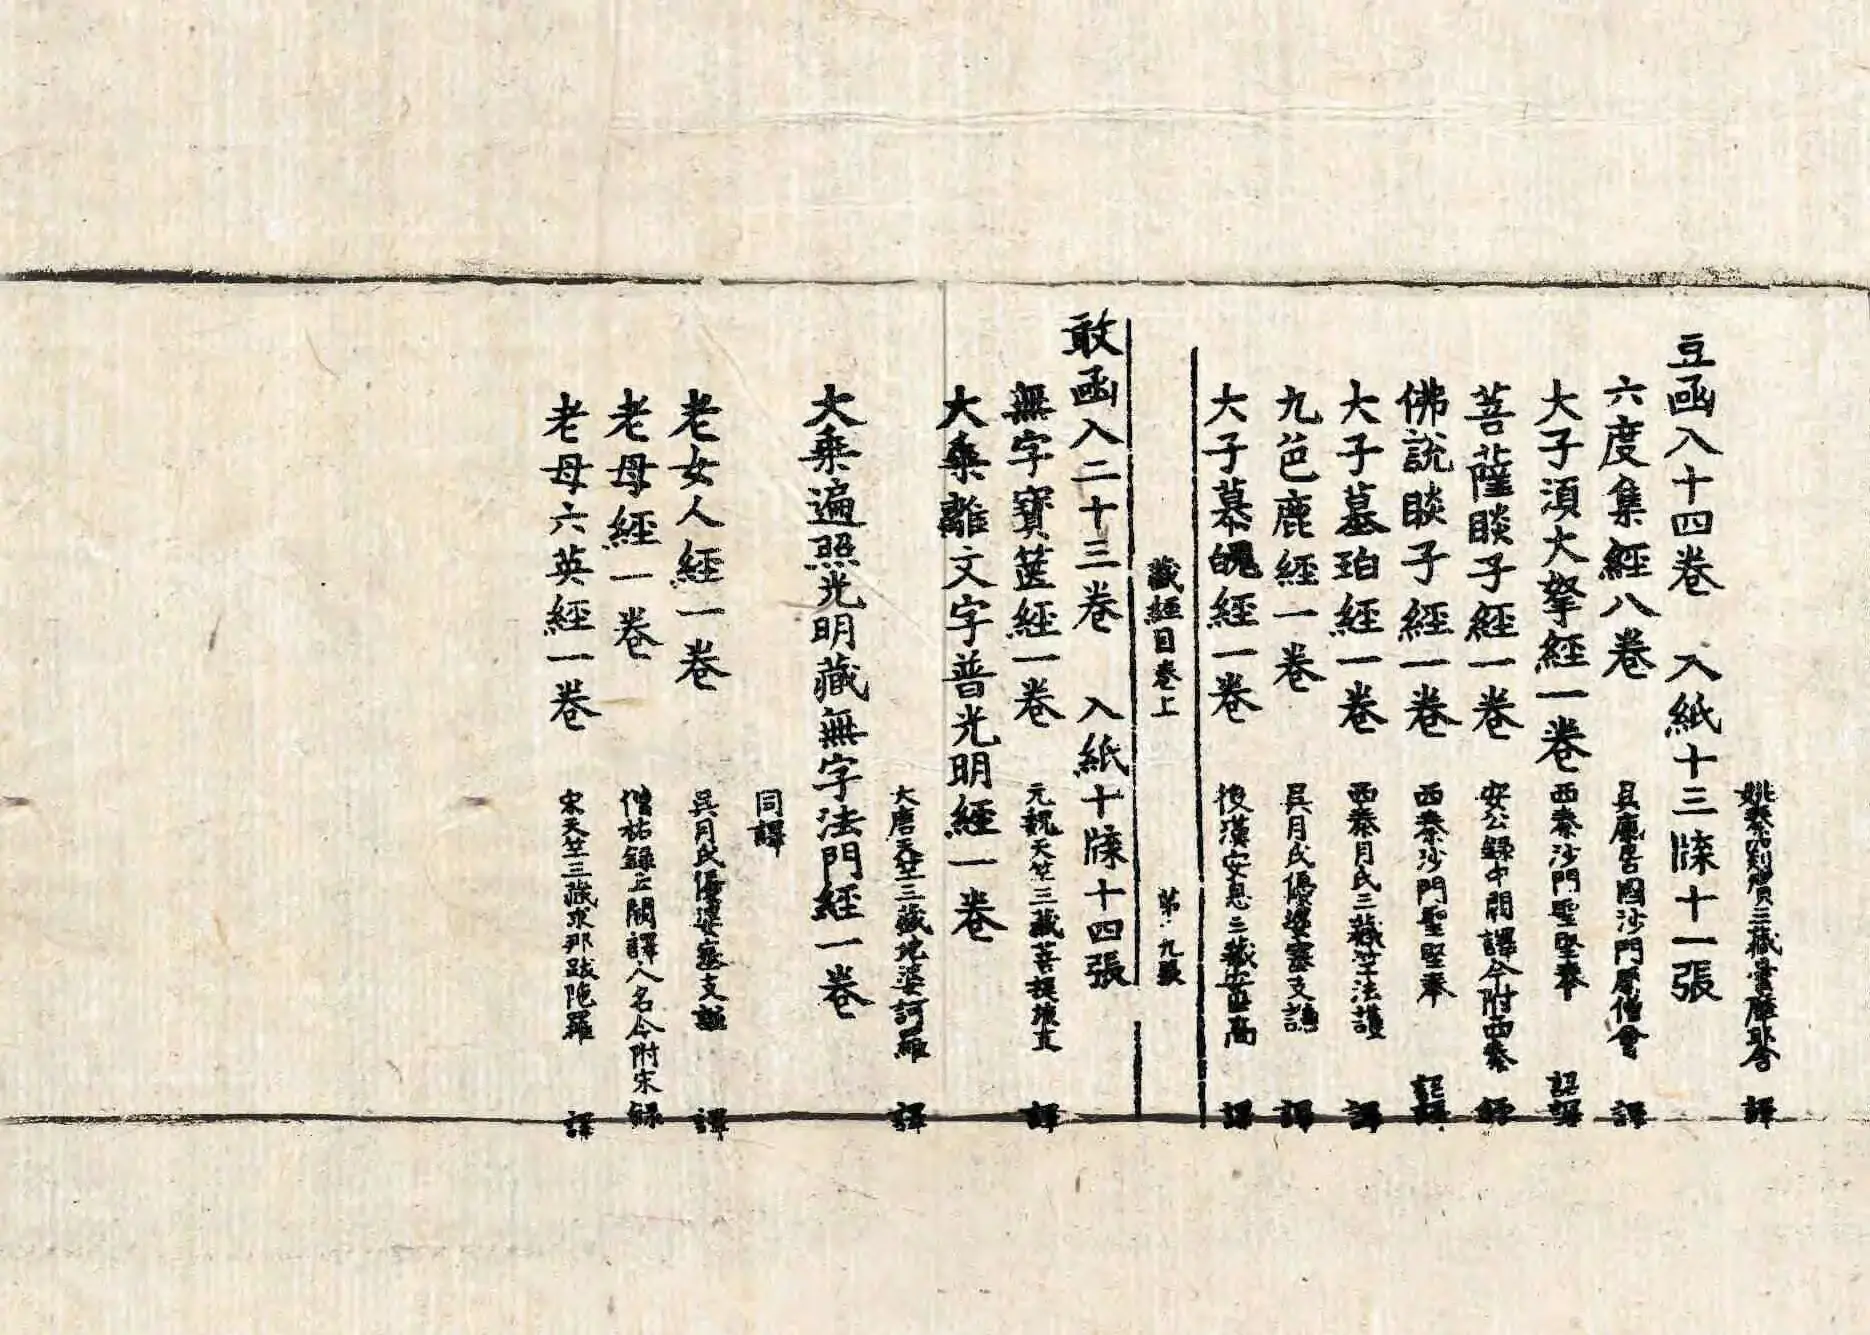 姚秦罽賓三藏曇摩耶舍 譯
豆函入十四卷 入紙十三牒十一張
六度集經八卷 吳康居國沙門康僧會 譯
大子湏大拏經一卷 西秦沙門聖堅奉 詔譯
菩薩睒子經一卷 安公錄中闕譯今附西秦 錄
佛說睒子經一卷 西秦沙門聖堅奉 詔譯
大子墓珀經一卷 西秦月氏三藏竺法護 譯
九色鹿經一卷 吳月氏優婆塞支謙 譯
大子慕魄經一卷 後漢安息三藏安世高 譯
藏經目卷上 第九張
敢函入二十三卷 入紙十牒十四張
無字寶篋經一卷 元魏天竺三藏菩提留支 譯
大乘離文字普光明經一卷
大唐天竺三藏地婆訶羅 譯
大乘遍照光明藏無字法門經一卷
同譯
老女人經一卷 吳月氏優婆塞支謙 譯
老母經一卷 僧祐錄云闕譯人名今附宋錄
老母六英經一卷 宋天竺三藏求那跋陁羅 譯